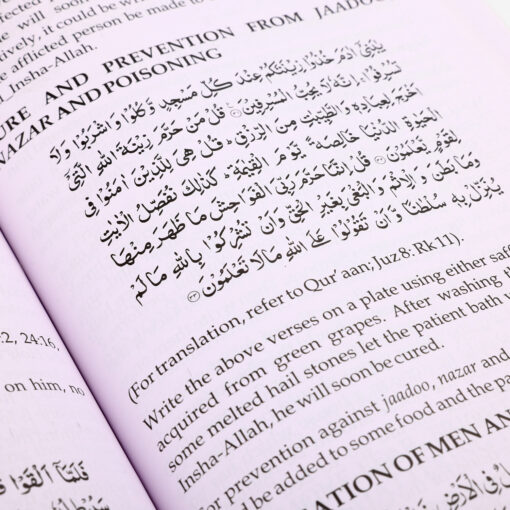 he will soon
tively, it could be writ
e afflicted person be made to
Insha-Allah.
URE AND PREVENTION FROM JAADOO
NAZAR AND POISONING
يٰبَنِيْٓ اٰدَمَ خُذُوْا زِيْنَتَكُمْ عِنْدَ كُلِّ مَسْجِدٍ وَّكُلُوْا وَاشْرَبُوْا وَلَا
تُسْرِفُوْا ۚ اِنَّهٗ لَا يُحِبُّ الْمُسْرِفِيْنَ قُلْ مَنْ حَرَّمَ زِيْنَةَ اللّٰهِ الَّتِيْٓ
اَخْرَجَ لِعِبَادِهٖ وَالطَّيِّبٰتِ مِنَ الرِّزْقِ ؕ قُلْ هِيَ لِلَّذِيْنَ اٰمَنُوْا فِي
الْحَيٰوةِ الدُّنْيَا خَالِصَةً يَّوْمَ الْقِيٰمَةِ ؕ كَذٰلِكَ نُفَصِّلُ الْاٰيٰتِ
لِقَوْمٍ يَّعْلَمُوْنَ قُلْ اِنَّمَا حَرَّمَ رَبِّيَ الْفَوَاحِشَ مَا ظَهَرَ مِنْهَا
وَمَا بَطَنَ وَالْاِثْمَ وَالْبَغْيَ بِغَيْرِ الْحَقِّ وَاَنْ تُشْرِكُوْا بِاللّٰهِ مَا لَمْ
يُنَزِّلْ بِهٖ سُلْطٰنًا وَّاَنْ تَقُوْلُوْا عَلَى اللّٰهِ مَا لَا تَعْلَمُوْنَ
(For translation, refer to Qur'aan, Juz 8: Rk 11).
Write the above verses on a plate using either saff
acquired from green grapes. After washing th
some melted hail stones let the patient bath u
Insha-Allah, he will soon be cured.
For prevention against jaadoo, nazar and
be added to some food and the pa
RATION OF MEN AN
:2, 24:16,
on him, no
فَلَمَّآ اَلْقَوْا